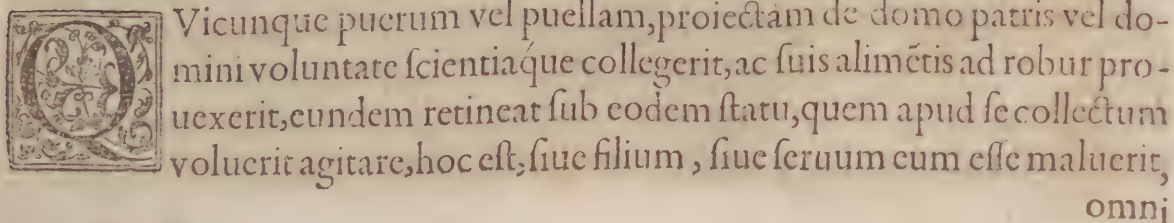 QVicunque puerum vel puellam, proiectam de domo patris vel do-
mini voluntate ſcientiaq́ue collegerit, ac ſuis alimētis ad robur pro-
uexerit, eundem retineat ſub eodem ſtatu, quem apud ſe collectum
voluerit agitare, hoc eſt, ſiue filium, ſiue ſeruum eum eſſe maluerit,
omni